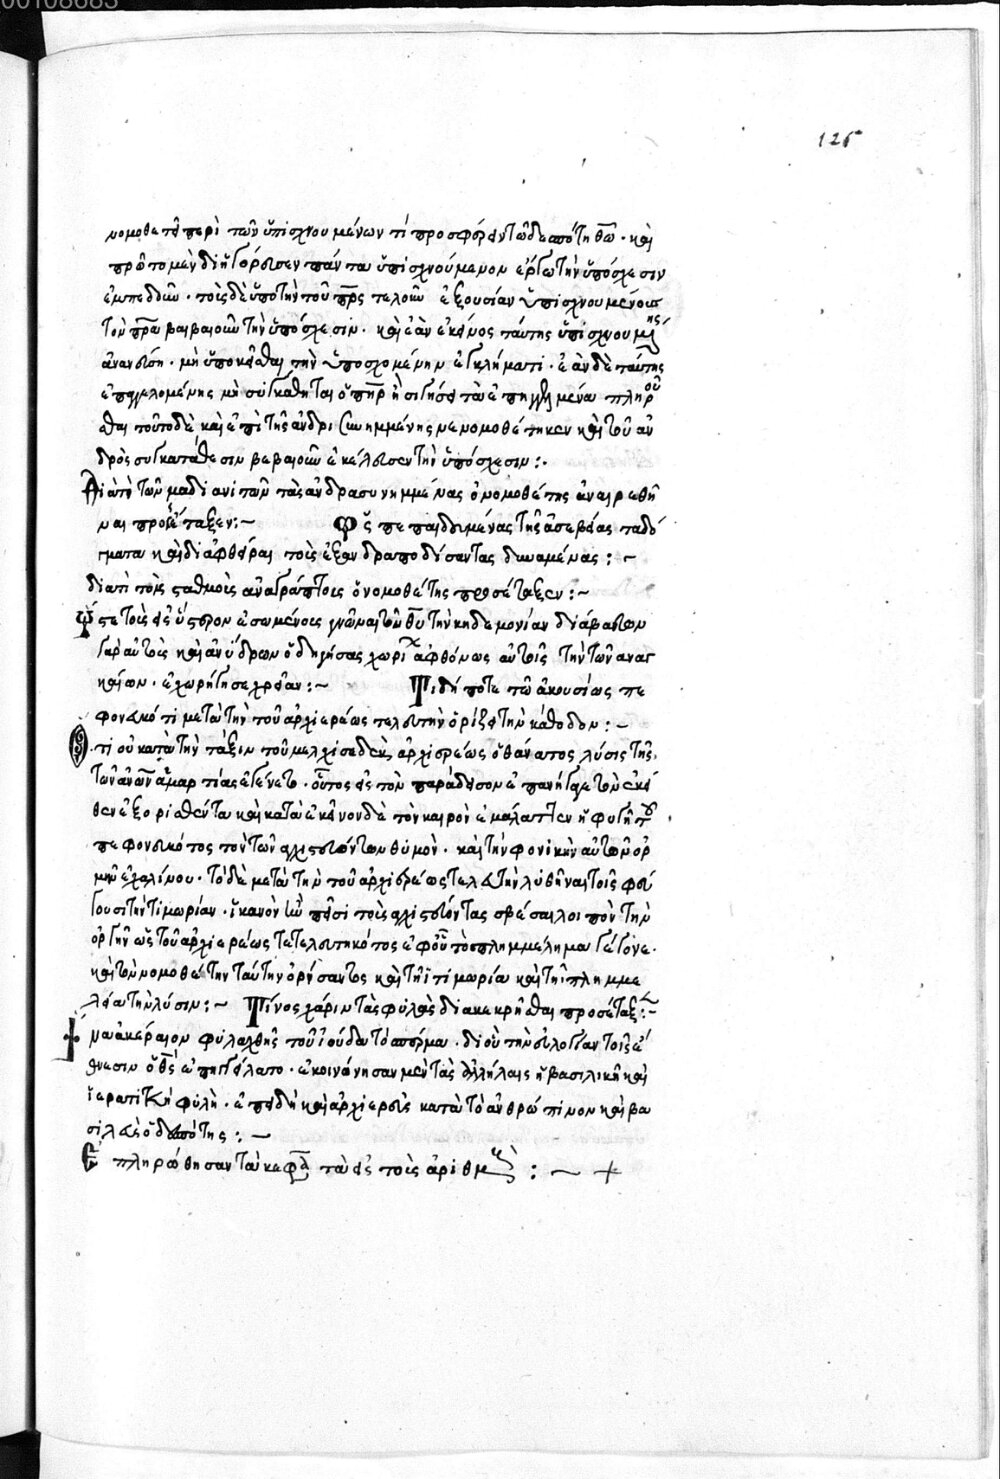 00108683
126
νομοθετεῖ περὶ τῶν ὑπισχνουμένων τί προσφέρειν τῶ δεσπότη θ̅ῶ· καὶ
πρῶτον μὲν διηγόρευσεν πάντα ὑπισχνούμενον ἔργω τὴν ὑπόσχεσιν
ἐμπεδοῦν· τοῖς δὲ ὑπὸ τὴν τοῦ πρ̅ς τελοῦν ἐξουσίαν ὑπισχνουμένοις
τὸν πρ̅α βαιβαιοῦν τὴν ὑπόσχεσιν· καὶ ἐὰν ἐκεῖνος ταύτης ὑπισχνουμένης
ἀνανεύση· μὴ ὑποκεῖσθαι τὴν ὑποσχομένην ἐγκλήματι· ἐὰν δὲ ταύτης
ἐπαγγελομένης μὴ συγκάθηται ὁ πη̅ρ ἢ σιγήσει τὰ ἐπηγγελμένα πληροῦ
σθαι τοῦτο δὲ καὶ ἐπὶ τῆς ἀνδρὶ συνημμένης νενομοθέτηκεν καὶ τοῦ ἀν
δρὸς συγκατάθεσιν βεβαιοῦν ἐκέλευσεν τὴν ὑπόσχεσιν:·
Διατὶ τῶν μαδιανιτῶν τὰς ἀνδρασυνημμένας ὁ νομοθέτης ἀναιρεθῆ
ναι προσέταξεν:~ Ὡς πεπαιδευμένας τῆς ἀσεβείας τὰ δό
γματα καὶ διαφθεῖραι τοὺς ἐξανδραποδίσαντας δυναμένας:~
διατὶ τοὺς σταθμοὺς ἀναγράπτοις ὁ νομοθέτης προσέταξεν:~
Ὥστε τοῖς εἰσύστερον ἐσωμένοις γνῶναι τοῦ θ̅υ τὴν κηδεμονίαν δι' ἀβάτων
γὰρ αὐτοὺς καὶ ἀνύδρων ὁδηγήσας χωρίων ἀφθόνως αὐτοῖς τὴν τῶν αναγ
καίων· ἐχωρήγησε χρείαν:~ Τί δήποτε τῶ ἀκουσίως πε
φονευκότι μετὰ τὴν τοῦ ἀρχιερέως τελευτὴν ὁρίζει τὴν κάθοδον:~
Ὅτι οὐ κατὰ τὴν τάξιν τοῦ μελχισεδὲκ ἀρχιερέως ὁ θάνατος λύσις τῆς
τῶν ἀν̅ων ἁμαρτίας ἐγένετο· οὗτος εἰς τὸν παράδεισον ἐπανήγαγε τὸν ἐκεῖ
θεν ἐξορισθέντα καὶ κατὰ ἐκεῖνον δὲ τὸν καιρὸν ἐμάλαττεν ἡ φυγὴ τοῦ
πεφονευκότος τὸν τῶν ἀγχιστευόντων θυμὸν· καὶ τὴν φονικὴν αὐτῶν ὁρ
μὴν ἐχαλίνου· τὸ δὲ μετὰ τὴν τοῦ ἀρχιερέως τελευτὴν λυθῆναι τοῖς φεύ
γουσι τὴν τιμωρίαν· ἱκανὸν ἦν πεῖσαι τοὺς ἀγχιστεύοντας σβέσαι λοιπὸν τὴν
ὀργὴν ὡς τοῦ ἀρχιερέως τετελευτηκότος ἐφοῦ τὸ πλημμέλημα γέγονε·
καὶ τὸν νομοθέτην ταύτην ὁρίσαντος καὶ τῆ τιμωρία καὶ τῆ πλημμε
λεία τὴν λύσιν:~ Τίνος χάριν τὰς φυλὰς διακεκρῆσθαι προσέταξε:~
Ἵνα ἀκέραιον φυλαχθῆ τοῦ ἰούδα τὸ σπέρμα· δι' οὗ τὴν εὐλογίαν τοῖς ἔ
θνεσιν ὁ θ̅ς ἐπηγγείλατο· ἐκοινώνησαν μέντας ἀλλήλαις ἡ βασιλικὴ καὶ
ἱερατικὴ φυλὴ· ἐπειδὴ καὶ ἀρχιερεὺς κατὰ τὸ ἀνθρώπινον καὶ βα
σιλεὺς ὁ δεσπότης:~
Ἐπληρώθησαν τὰ κεφά τὰ εἰς τοὺς ἀριθμούς :~ +